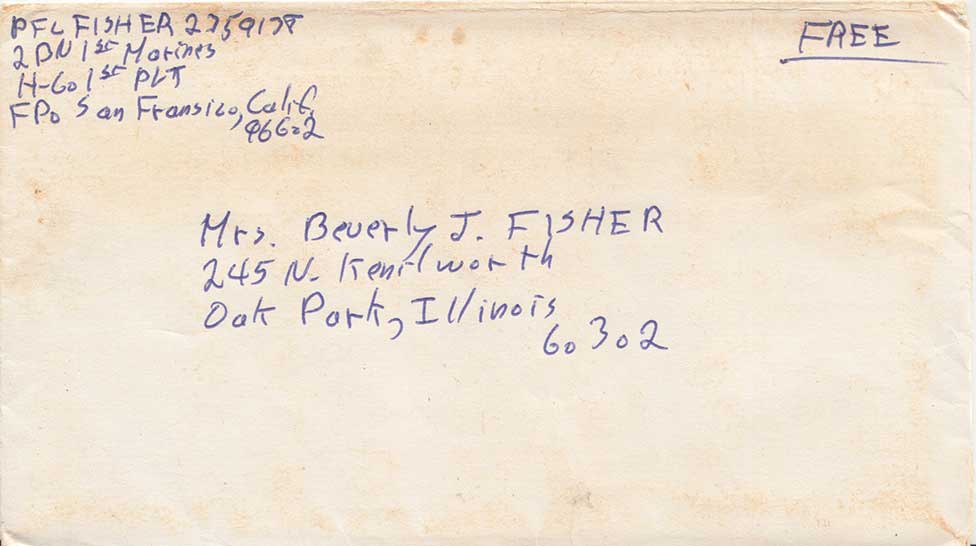 PFC FISHER 2259178
2BN 1st Marines
H-Co 1st PLT
FPO San Fransico, Calif.
96602
FREE
Mrs. Beverly J. FISHER
245 N. Kenilworth
Oak Park, Illinois
60302